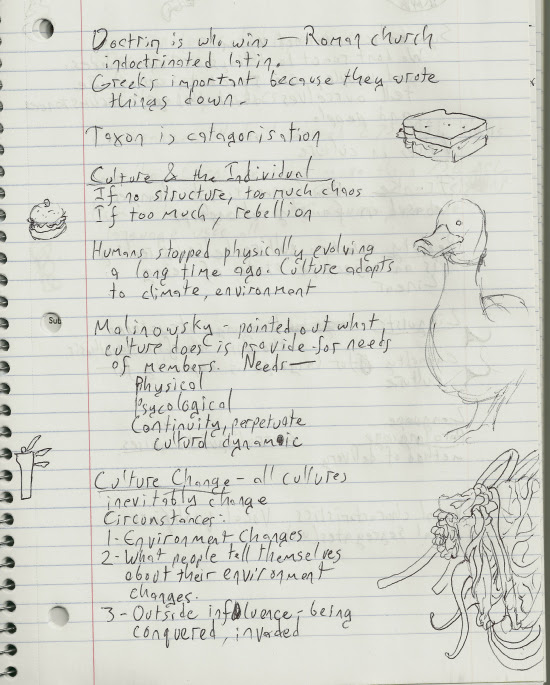 Doctrin is who wins — Roman church
indoctrinated latin.
Greeks important because they wrote
things down.
Taxon is catagorisation
Culture & the Individual
If no structure, too much chaos
If too much, rebellion
Humans stopped physically evolving
a long time ago. Culture adapts
to climate, environment
Malinowsky - pointed out what
culture does is provide for needs
of members. Needs—
Physical
Psycological
Continuity, perpetuate
cultural dynamic
Culture Change - all cultures
inevitably change
Circumstances:
1 - Environment Changes
2 - What people tell themselves
about their environment
changes.
3 - Outside influence - being
conquered, invaded
Sub